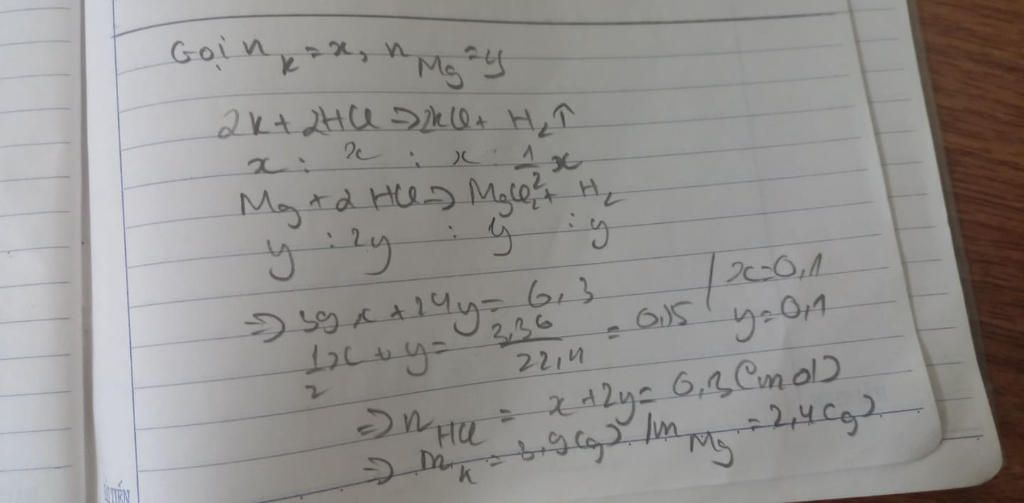 Gọi n_K = x, n_Mg = y
2K + 2HCl → 2KCl + H₂↑
x : x : x : 1/2 x
Mg + 2HCl → MgCl₂ + H₂
y : 2y : y : y
⇒ 39x + 24y = 6,3 | x = 0,1
1/2 x + y = 3,36/22,4 = 0,15 | y = 0,1
⇒ n_HCl = x + 2y = 0,3 (mol)
⇒ m_K = 3,9 (g) / m_Mg = 2,4 (g)